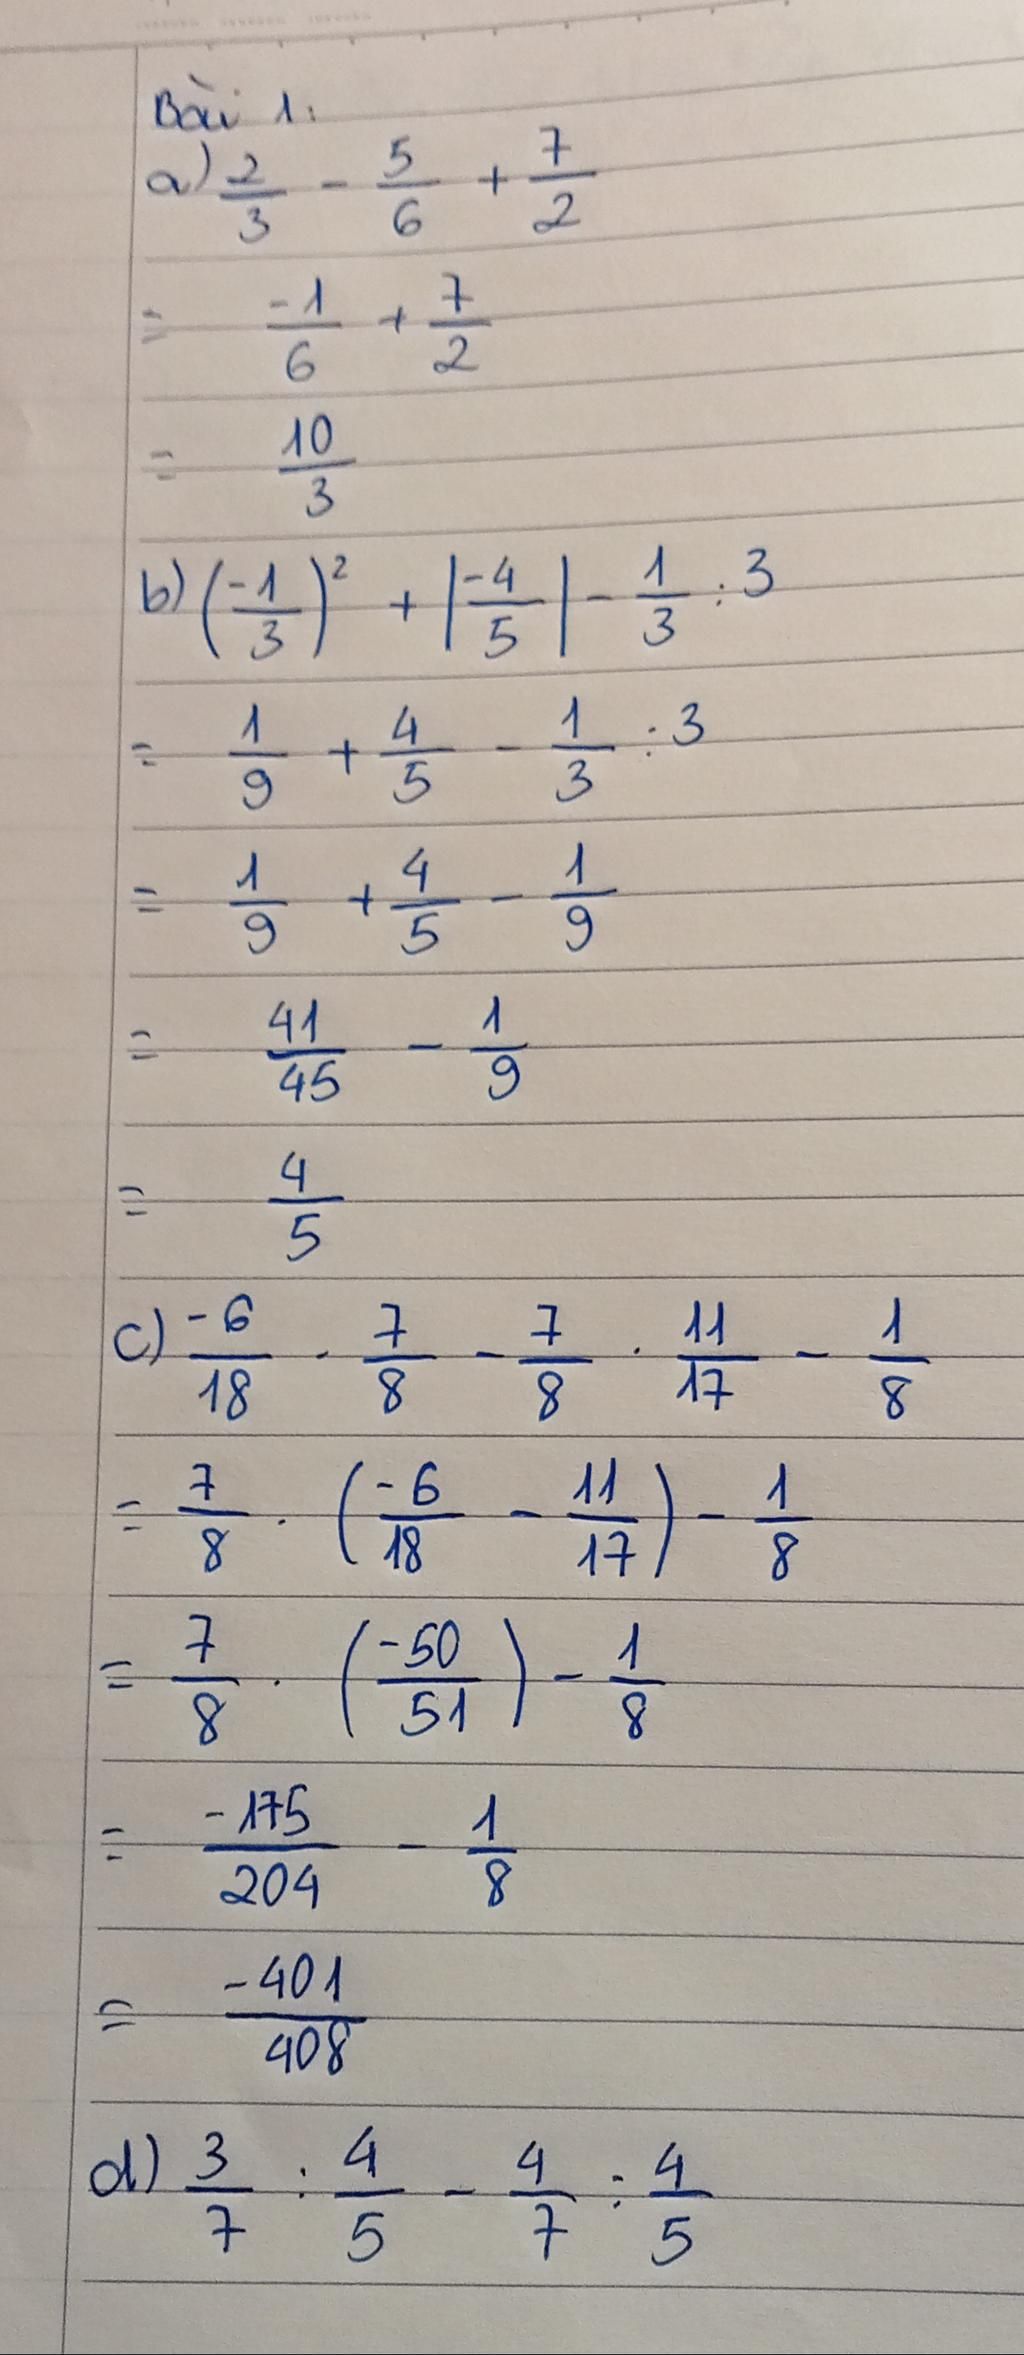 Bài 1:
a) 2/3 - 5/6 + 7/2
= -1/6 + 7/2
= 10/3
b) (-1/3)² + |-4/5| - 1/3 : 3
= 1/9 + 4/5 - 1/3 : 3
= 1/9 + 4/5 - 1/9
= 41/45 - 1/9
= 4/5
c) -6/18 . 7/8 - 7/8 . 11/17 - 1/8
= 7/8 . (-6/18 - 11/17) - 1/8
= 7/8 . (-50/51) - 1/8
= -175/204 - 1/8
= -401/408
d) 3/7 : 4/5 - 4/7 : 4/5